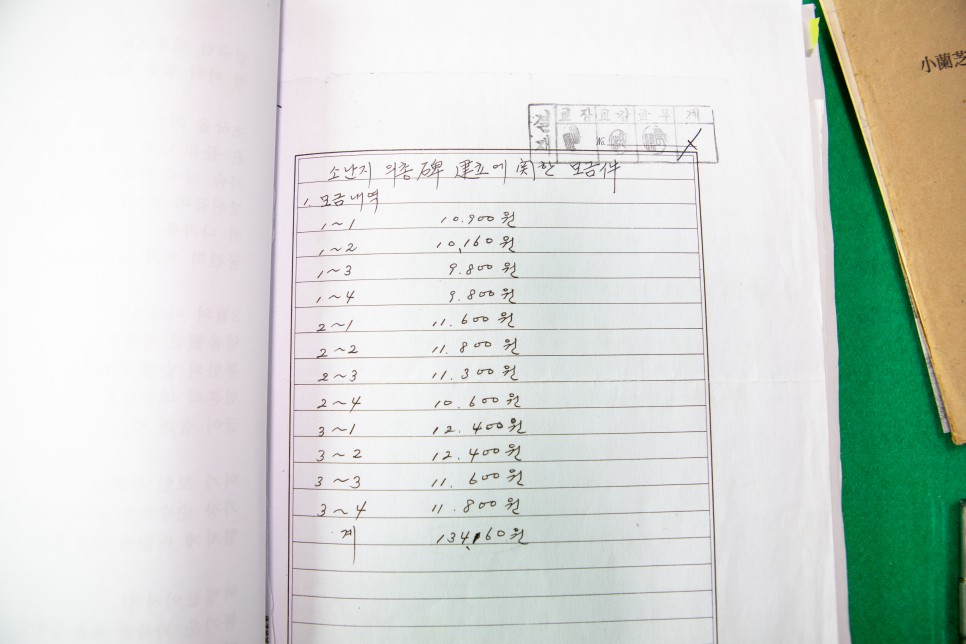 小蘭芝
결재 교장 교감 교무 계
소난지 의총碑 建立에 関한 모금件
1. 모금내역
1~1 10.900원
1~2 10,160원
1~3 9.800원
1~4 9.800원
2~1 11.600원
2~2 11.800원
2~3 11.300원
2~4 10.600원
3~1 12.400원
3~2 12.400원
3~3 11.600원
3~4 11.800원
계 134,160원